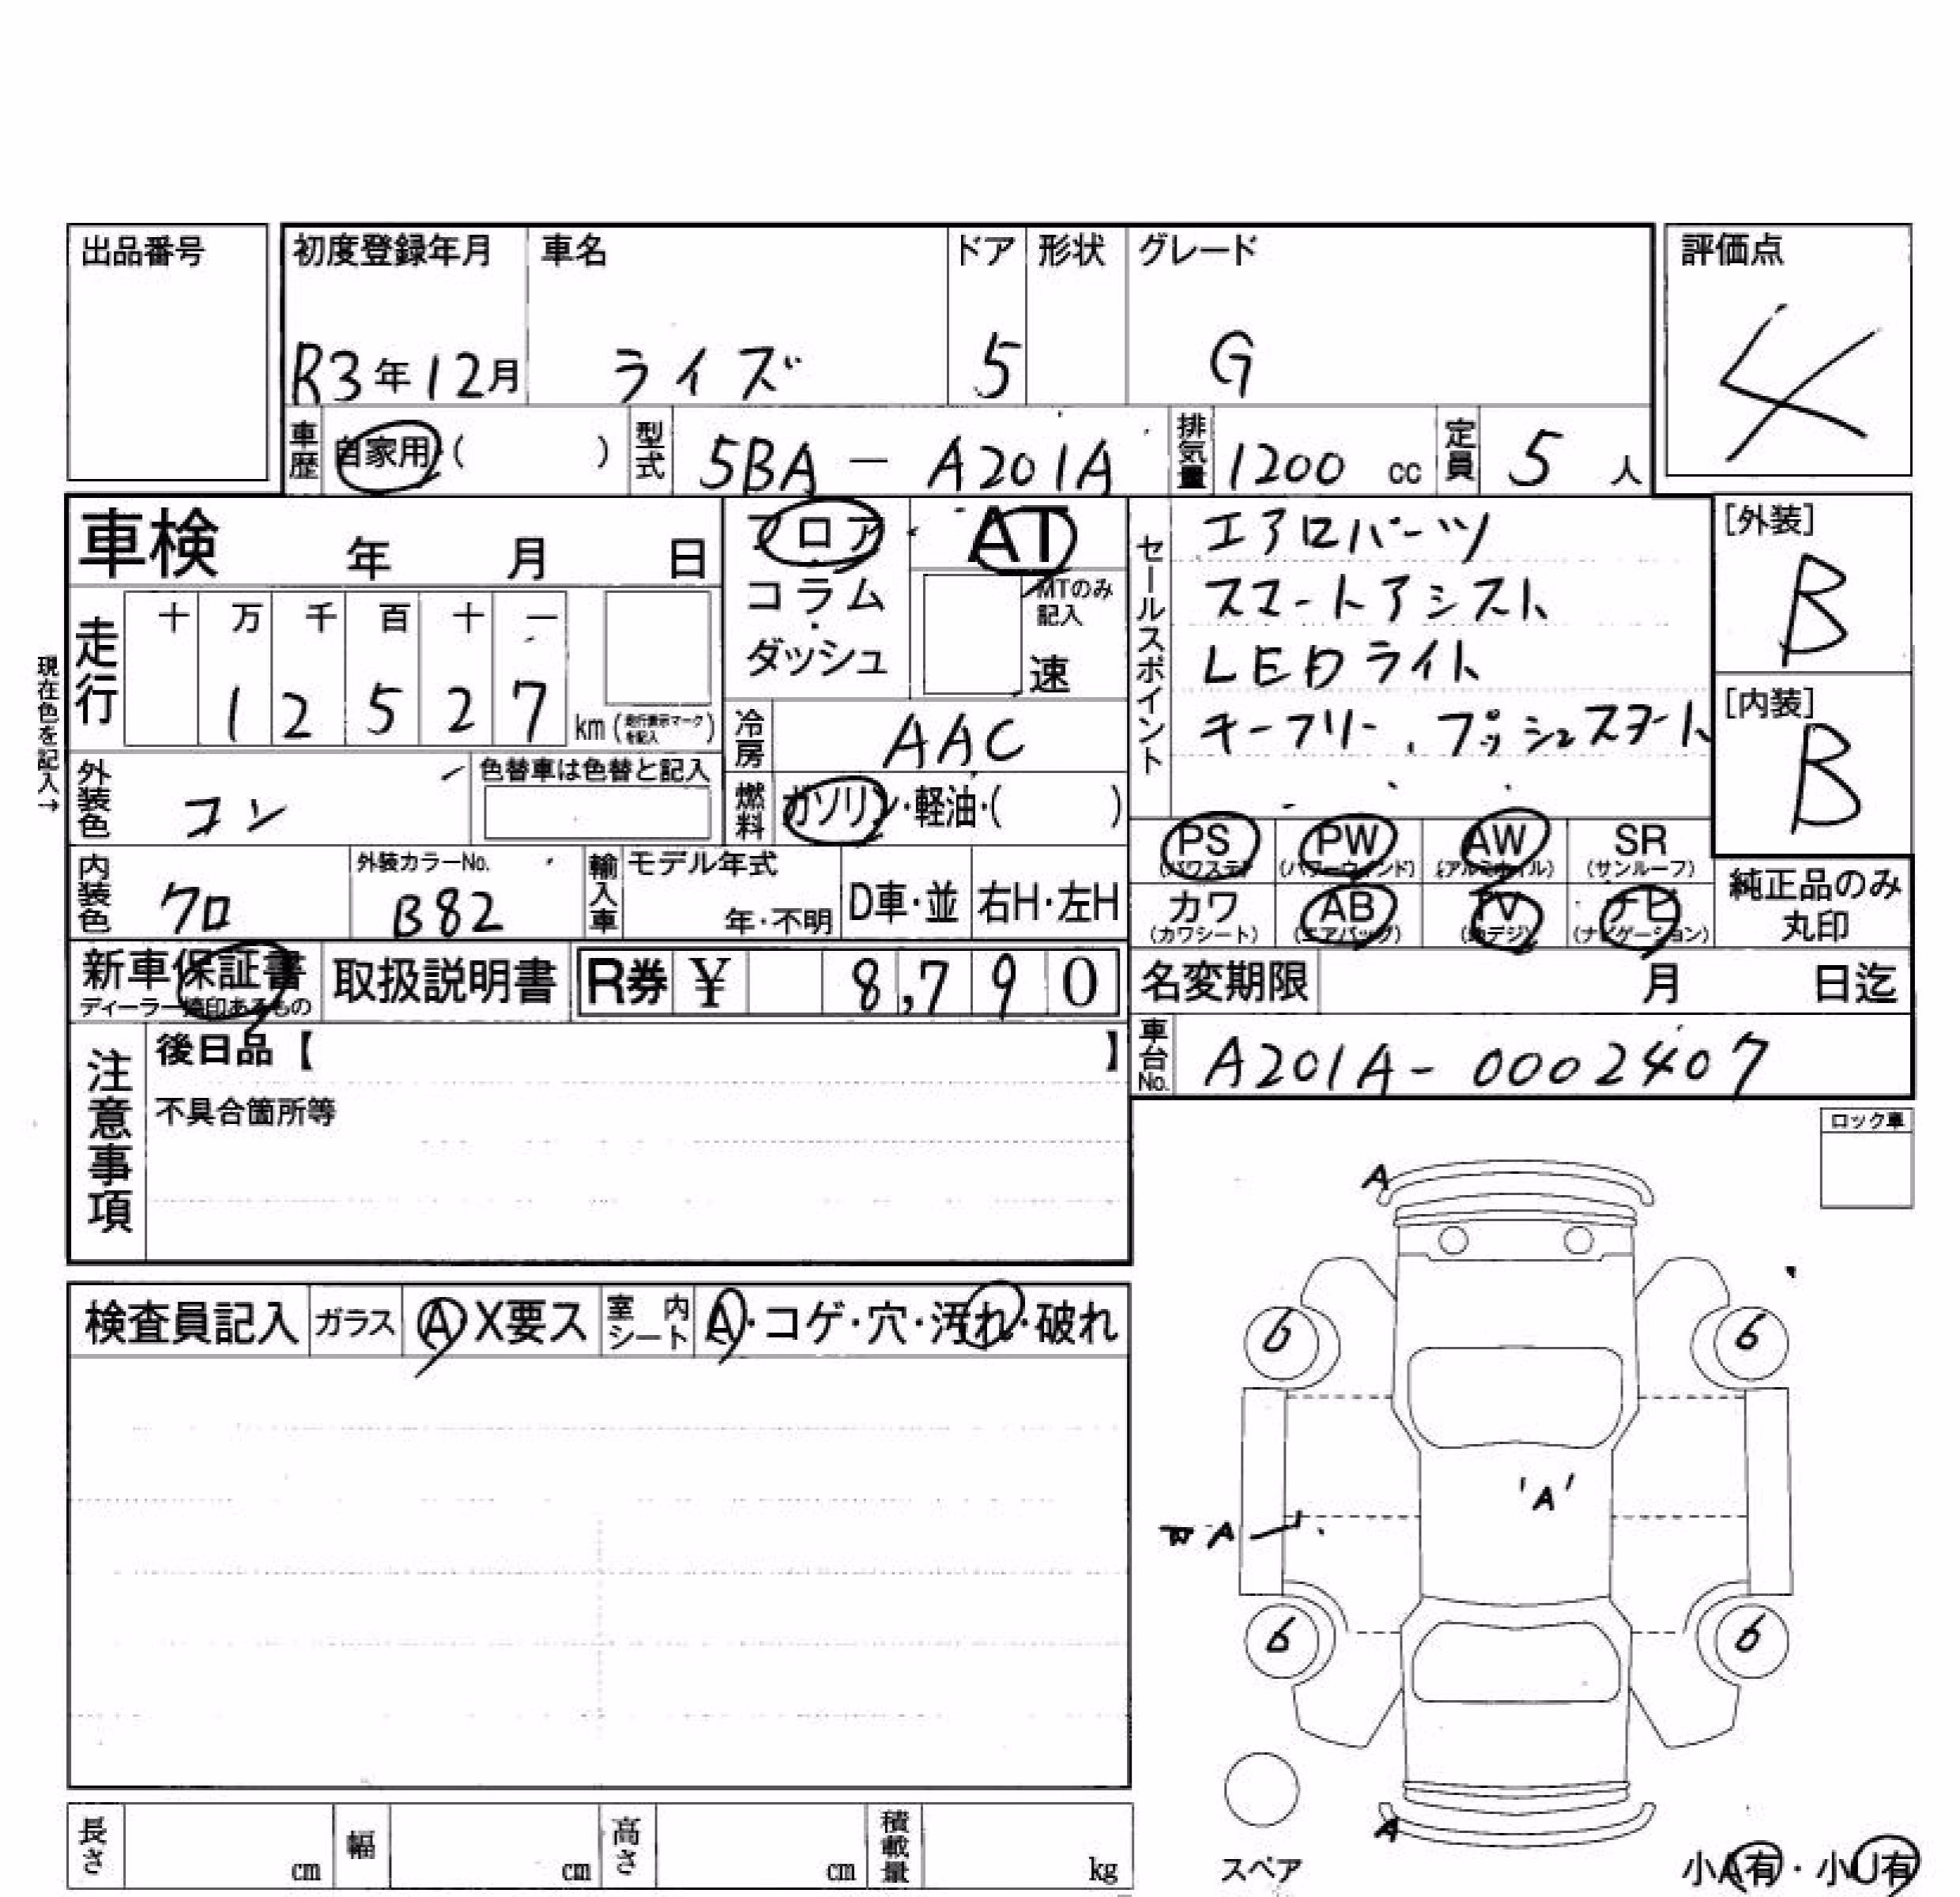 出品番号
初度登録年月 車名 ドア 形状 グレード
評価点
R3年12月 ライズ 5 G
4
車歴 自家用・( ) 型式 5BA-A201A 排気量 1200 cc 定員 5 人
車検 年 月 日
フロア
コラム
ダッシュ
AT
MTのみ
記入
速
セールスポイント
エアロパーツ
スマートアシスト
LEDライト
キーフリー、プッシュスタート
[外装]
B
[内装]
B
現在色を記入→
走行 十 万 千 百 十 一
1 2 5 2 7 km (走行表示マークを記入)
冷房 AAC
外装色 コン 色替車は色替と記入
燃料 ガソリン・軽油・( )
PS PW AW SR
(パワステ) (パワーウィンド) (アルミホイル) (サンルーフ)
カワ AB TV ナビ
(カワシート) (エアバッグ) (地デジ) (ナビゲーション)
純正品のみ
丸印
内装色 クロ 外装カラーNo. B82 輸入車 モデル年式 年・不明 D車・並 右H・左H
新車保証書 取扱説明書 R券 ¥ 8,790
ディーラー捺印あるもの
名変期限 月 日迄
車台No. A201A-0002407
注意事項
後日品【 】
不具合箇所等
ロック車
検査員記入 ガラス A X要ス 室内シート A・コゲ・穴・汚れ・破れ
A
6 6
'A'
A
6 6
A
スペア
小A有・小U有
長さ cm 幅 cm 高さ cm 積載量 kg